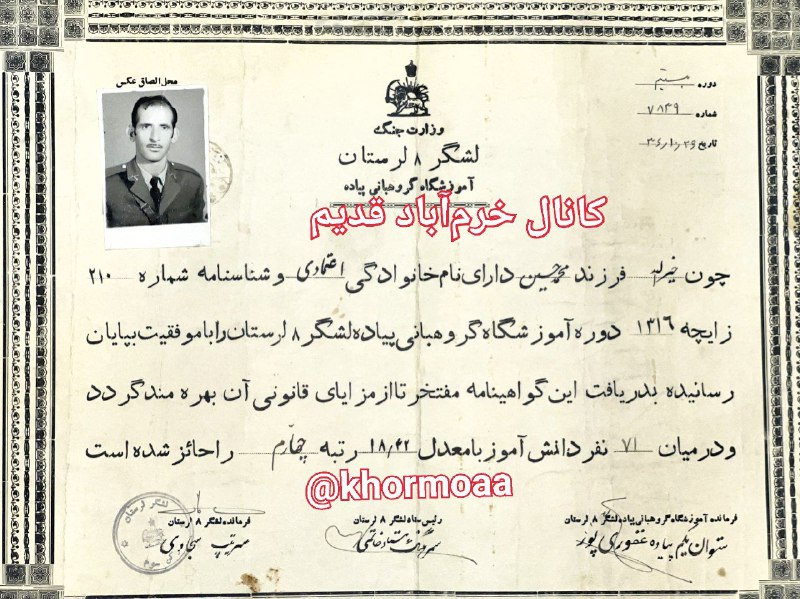 محل الصاق عکس
دوره بیستم
شماره ۷۸۳۹
تاریخ
وزارت جنگ
لشگر ۸ لرستان
آموزشگاه گروهبانی پیاده
کانال خرم‌آباد قدیم
چون خیراله فرزند محمدحسین دارای نام خانوادگی اعتمادی و شناسنامه شماره ۲۱۰
زایچه ۱۳۱۶ دوره آموزشگاه گروهبانی پیاده لشگر ۸ لرستان را با موفقیت بپایان
رسانیده بدریافت این گواهینامه مفتخر تا از مزایای قانونی آن بهره مند گردد
و در میان ۷۱ نفر دانش آموز با معدل ۱۸/۴۲ رتبه چهارم را حائز شده است
@khormoaa
فرمانده آموزشگاه گروهبانی پیاده لشگر ۸ لرستان
ستوان یکم پیاده غفوری پور
رئیس ستاد لشگر ۸ لرستان
سرهنگ ستاد خاتمی
فرمانده لشگر ۸ لرستان
سرتیپ سجادی
لشگر لرستان